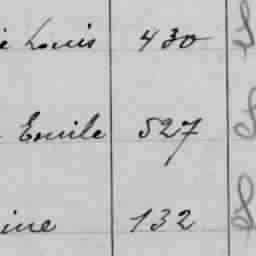 Louis 430
Emile 527
ine 132